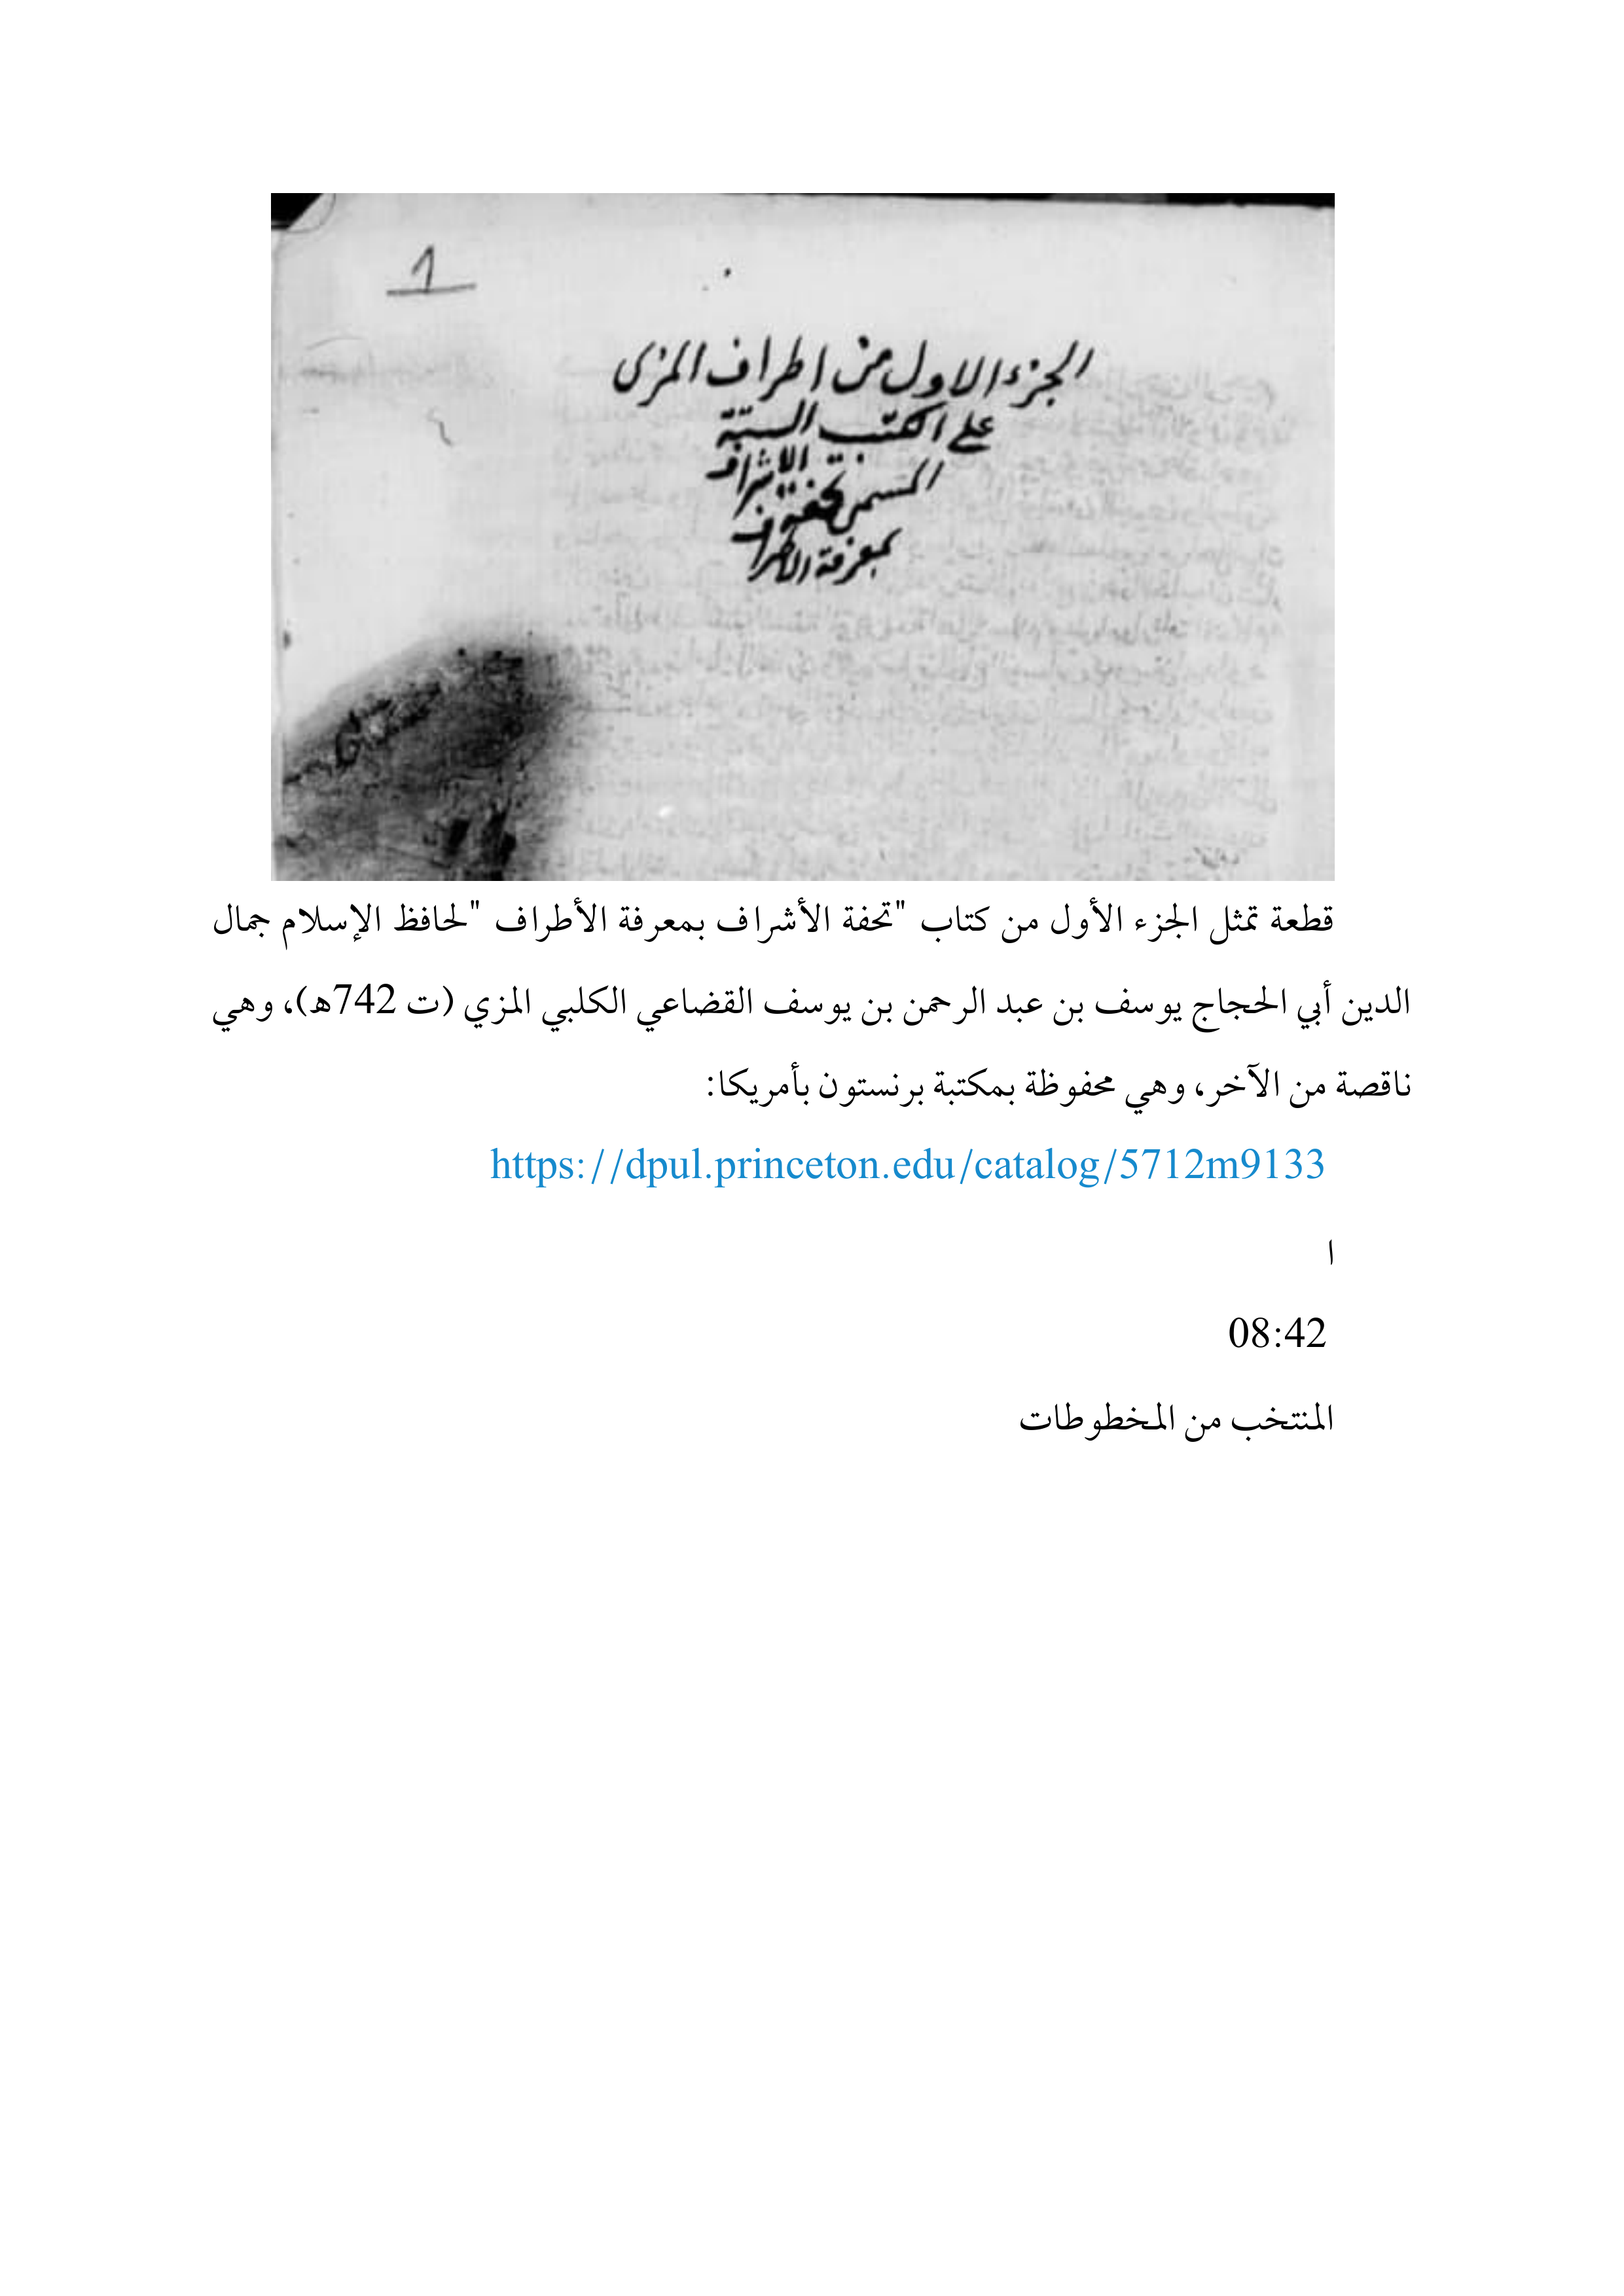 1
الجزء الاول من اطراف المزى
على الكتب الستة
المسمى بتحفة الاشراف
بمعرفة الاطراف
قطعة تمثل الجزء الأول من كتاب "تحفة الأشراف بمعرفة الأطراف "لحافظ الإسلام جمال
الدين أبي الحجاج يوسف بن عبد الرحمن بن يوسف القضاعي الكلبي المزي (ت 742ه)، وهي
ناقصة من الآخر، وهي محفوظة بمكتبة برنستون بأمريكا:
https://dpul.princeton.edu/catalog/5712m9133
ا
08:42
المنتخب من المخطوطات